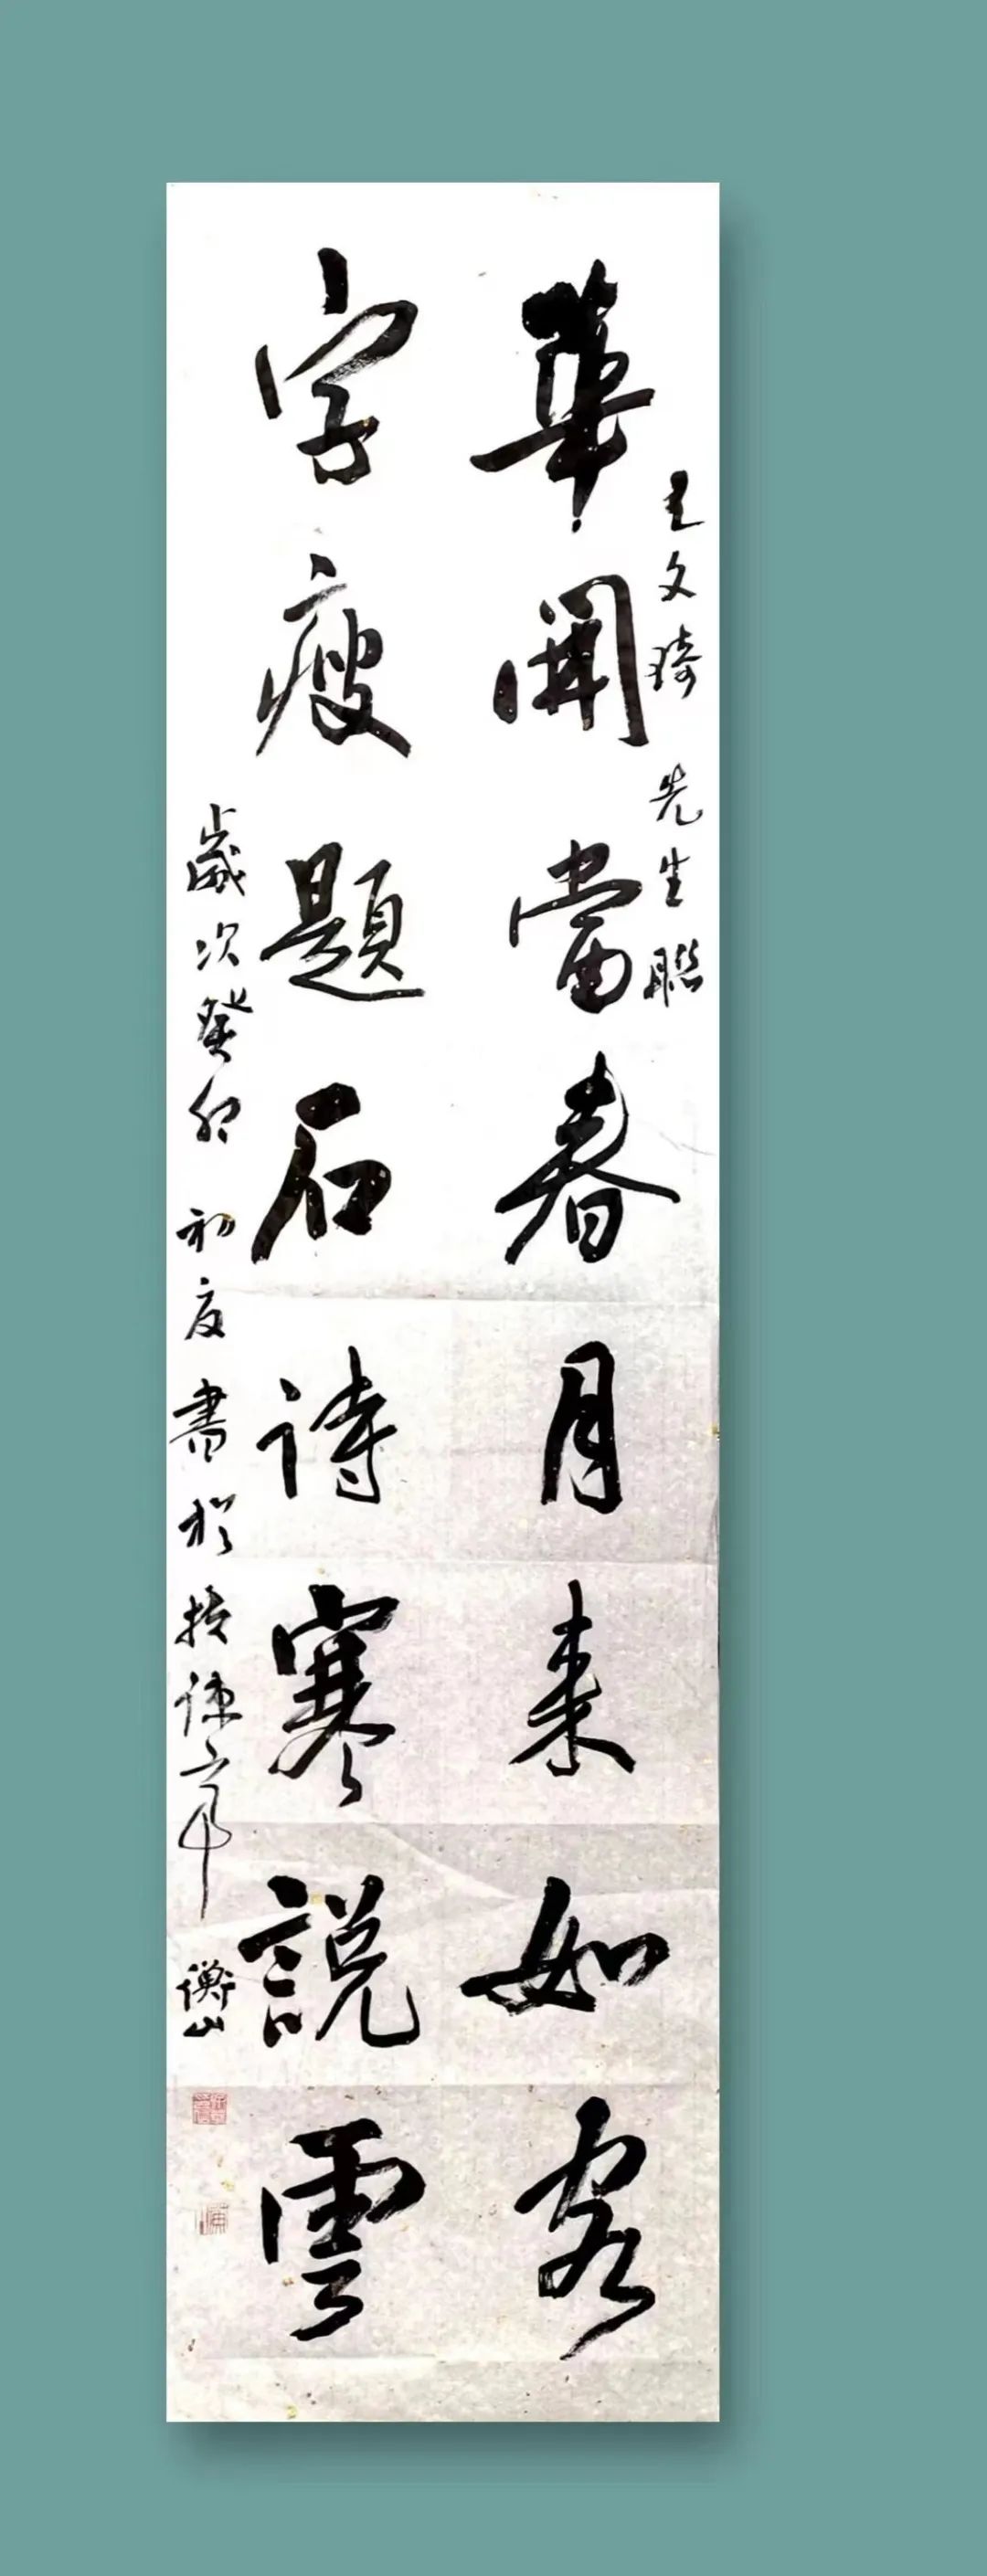 華開當春月來如客
字瘦題石詩寒說雲
王文琦先生聯
歲次癸卯初夏書於 衡山